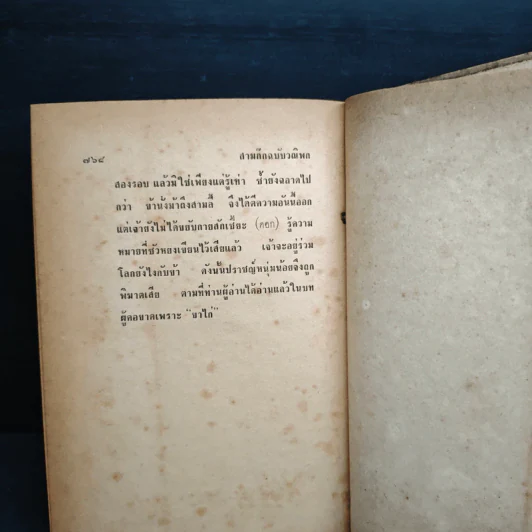 ๗๖๘ สามก๊กฉบับวณิพก
สองรอบ แล้วมิใช่เพียงแต่รู้เท่า ซ้ำยังฉลาดไป
กว่า ข้านั่งม้าถึงสามลี้ จึงได้ตีความอันนี้ออก
แต่เจ้ายังไม่ได้ขยับกายสักเขยื้อ (ศอก) รู้ความ
หมายที่ชัวหยงเขียนไว้เสียแล้ว เจ้าจะอยู่ร่วม
โลกยังไงกับข้า ดังนั้นปราชญ์หนุ่มน้อยจึงถูก
พิฆาตเสีย ตามที่ท่านผู้อ่านได้อ่านแล้วในบท
ผู้คอขาดเพราะ "ขาไก่"